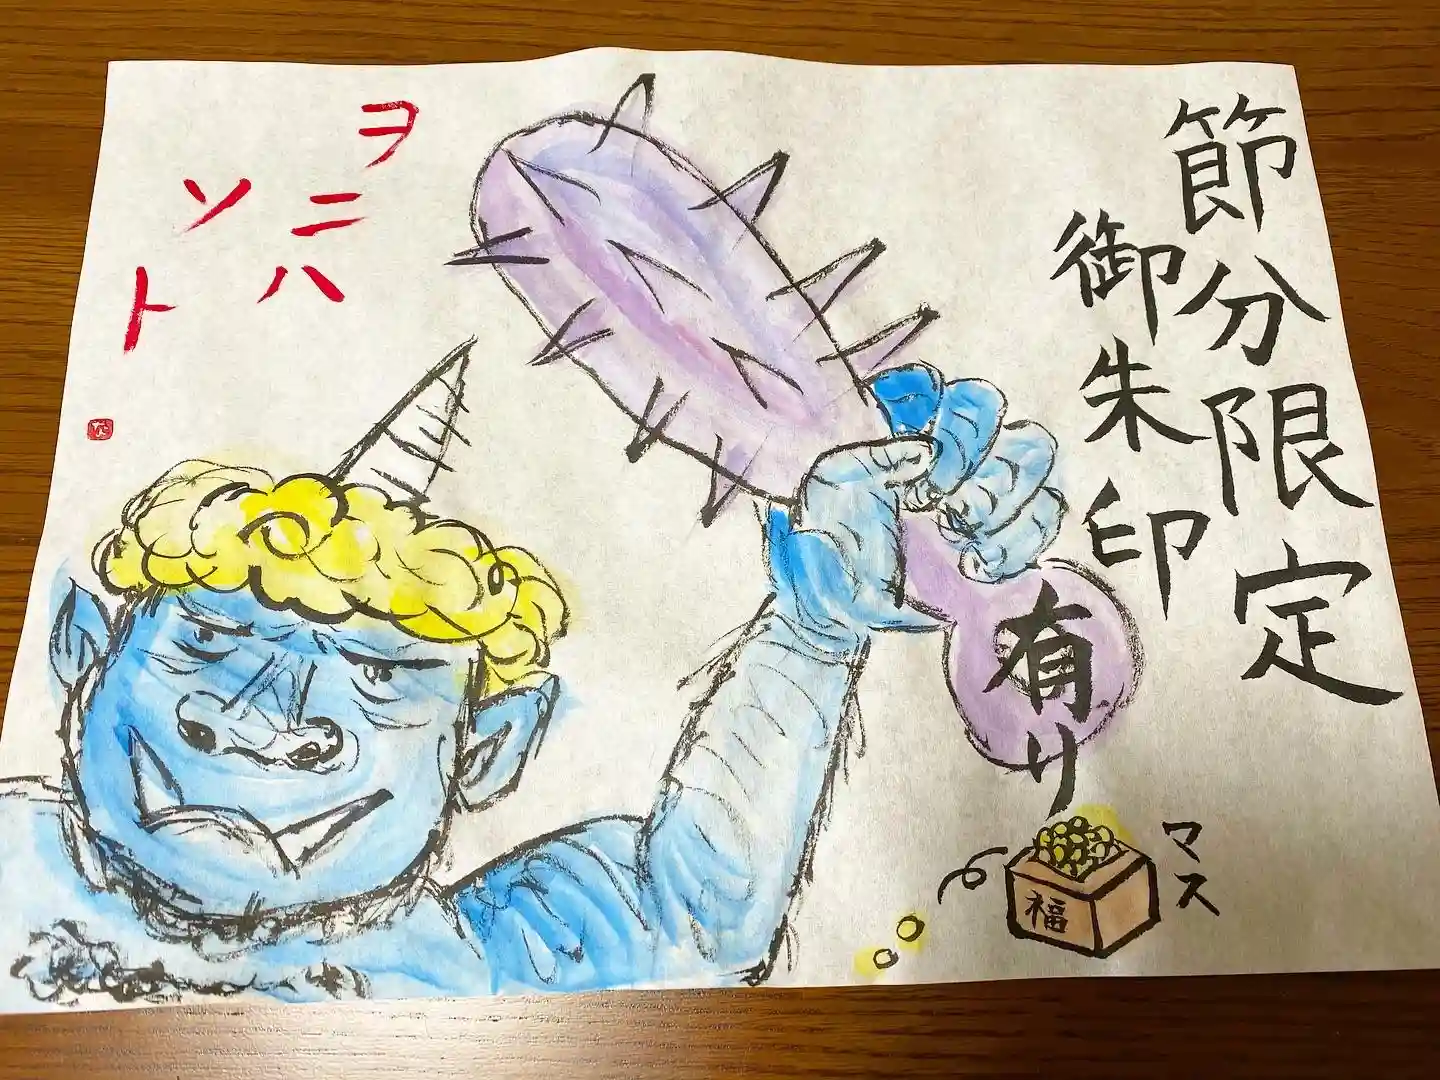 節分限定
御朱印
有り
マス
福
ヲニハ
ソト